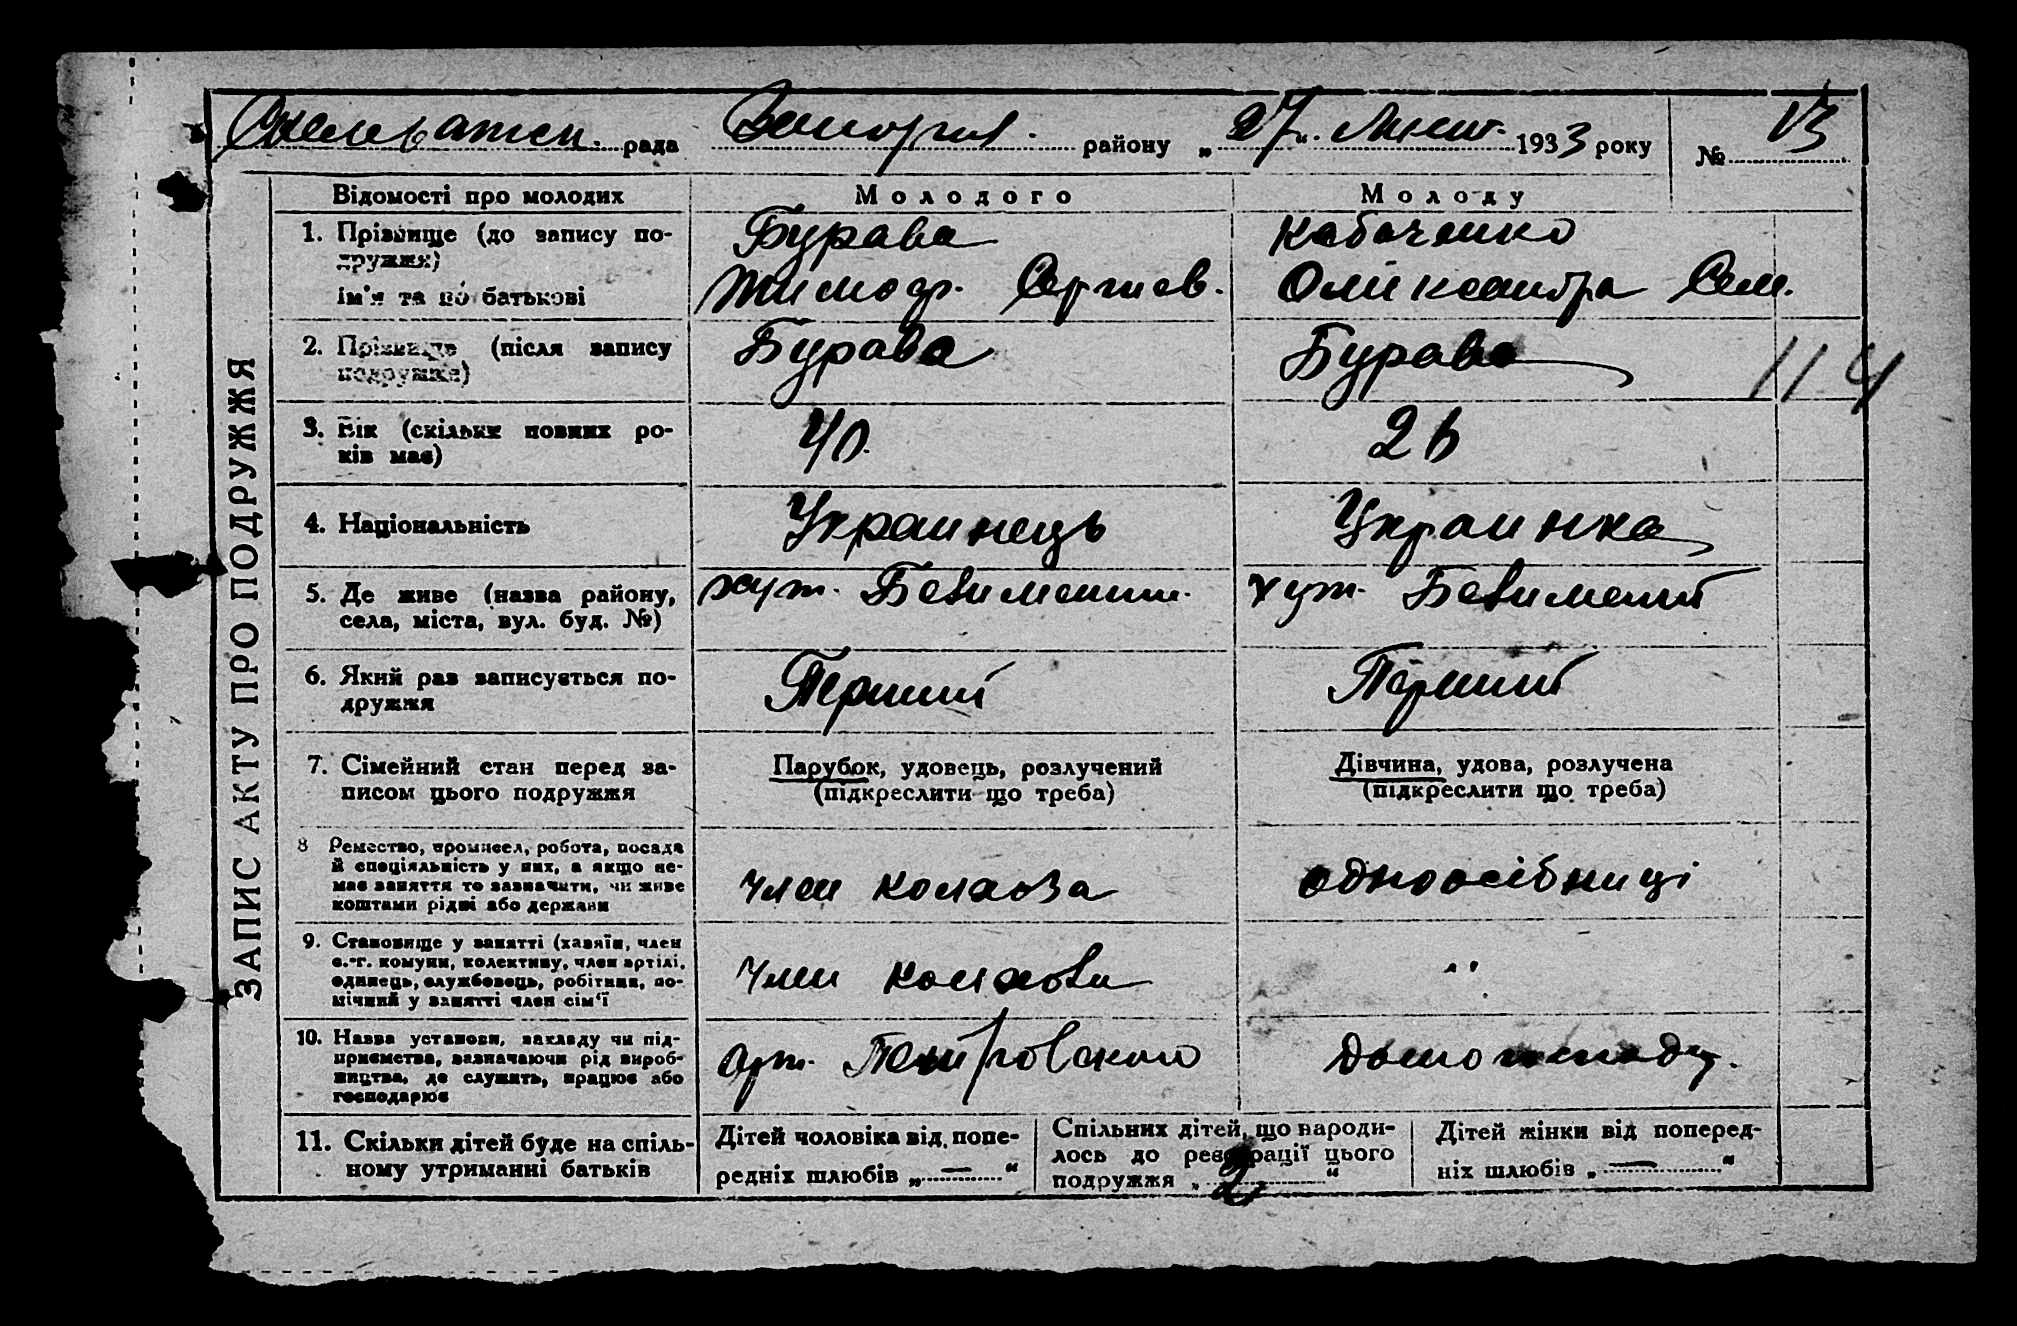 рада району „27“ Лист. 1933 року № 13
ЗАПИС АКТУ ПРО ПОДРУЖЖЯ
Відомості про молодих Молодого Молоду
1. Прізвище (до запису по- Бурава Кабаченко
дружжя)
ім'я та по батькові Тимоф. Сергиев. Олександра Сем.
2. Прізвище (після запису Бурава Бурава 114
подружжя)
3. Вік (скільки повних ро- 40. 26
ків має)
4. Національність Украинець Украинка
5. Де живе (назва району, хут. хут.
села, міста, вул. буд. №)
6. Який раз записується по- Перший Перший
дружжя
7. Сімейний стан перед за- Парубок, удовець, розлучений Дівчина, удова, розлучена
писом цього подружжя (підкреслити що треба) (підкреслити що треба)
8 Ремество, промисел, робота, посада
й спеціяльність у них, а якщо не-
має заняття то зазначити, чи живе член колхоза одноосібниці
коштами рідні або держави
9. Становище у занятті (хазяїн, член
с.-г. комуни, колективу, член артілі,
одинець, службовець, робітник, по- член колхоза "
мічний у занятті член сім'ї
10. Назва установи, закладу чи під-
приємства, зазначаючи рід вироб- арт. Петровского
ництва, де служить, працює або
господарює
11. Скільки дітей буде на спіль- Дітей чоловіка від попе- Спільних дітей, що народи- Дітей жінки від поперед-
ному утриманні батьків редніх шлюбів „—“ лось до реєстрації цього ніх шлюбів „—“
подружжя „2“